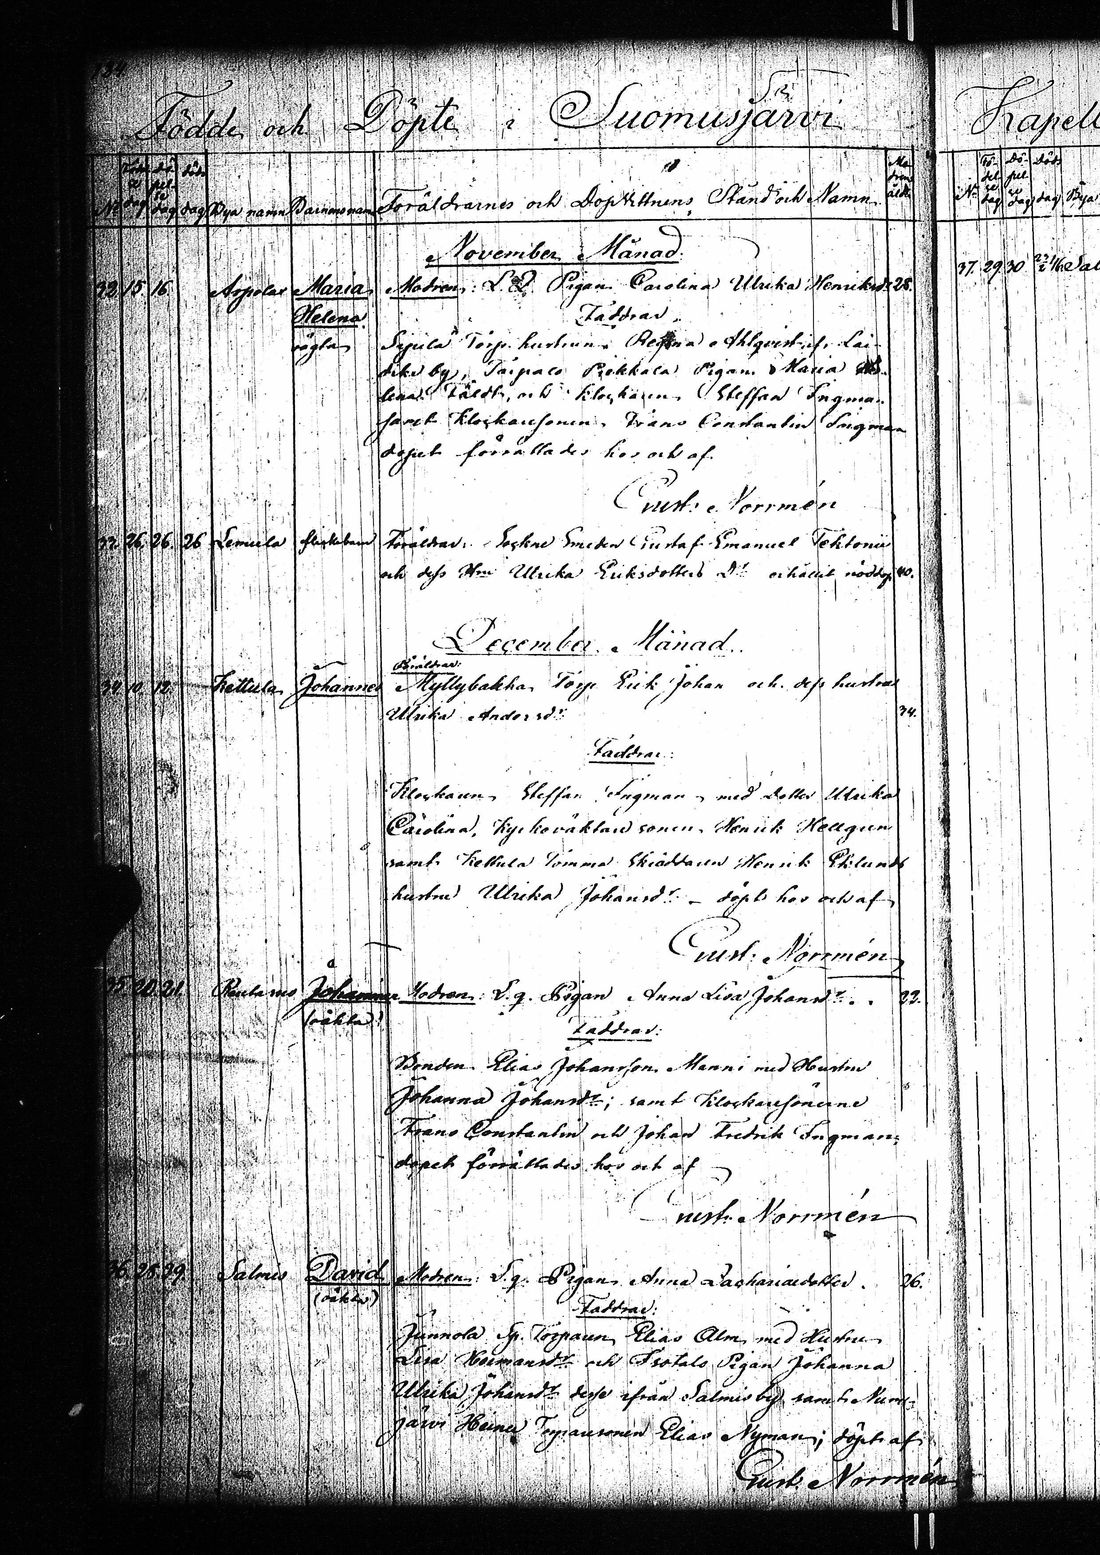 134.
Födde och Döpte i Suomusjärvi
Kapell
No Födelse dag Döpelse dag död dag Bya namn Barnens namn Föräldrarnes och Dopvittnens Stånd och Namn Modrens ålder
No Födelse dag Döpelse dag Död dag Bya
November Månad.
37. 29 30
32. 15. 16. Arpolax Maria Modren: L. Q. Pigan Carolina Ulrika Henriksdr 28.
Helena Faddrar.
oägta Torp. hustrun Regina Ahlqvist if.
by, Pigan Maria
och Klockaren Steffan Ingman
samt Klockaresonen Frans Constantin Ingman
dopet förrättades hos och af
Gust: Norrmén
33. 26. 26. 26 Lemula flickebarn Föräldrar: Sockne Smeden Gustaf Emanuel Tektonius
och dess Hru Ulrika Eriksdotter Dr erhållit nöddop 40.
December Månad.
Föräldrar:
34. 10. 12. Kettula Johannes Myllybakka Torp. Erik Johan och dess hustru
Ulrika Andersdr 34.
Faddrar:
Klockaren Steffan Ingman med Dotter Ulrika
Carolina, Kyrkoväktare sonen Henrik Hellgren
samt Kettula Tomma Skräddaren Henrik Eklunds
hustru Ulrika Johansdr – döpt hos och af
Gust: Norrmén
35. 20. 21. Johannes Modren: L. q. Pigan Anna Lisa Johansdr. 22.
(oäkta) Faddrar:
Bonden Elias Johansson Manni med Hustru
Johanna Johansdr; samt Klockaresönerne
Frans Constantin och Johan Fredrik Ingman;
dopet förrättades hos och af
Gust: Norrmén
36. 28. 29. Salmis David Modren: L. q. Pigan Anna Zachariaedotter. 26.
(oäkta) Faddrar:
Junnola Sp. Torparen Elias Alm med Hustru
Lisa Hermansdr och Isotalo Pigan Johanna
Ulrika Johansdr desse ifrån Salmis by samt Nummijärvi
Heinu Torparesonen Elias Nyman; döpt af
Gust: Norrmén